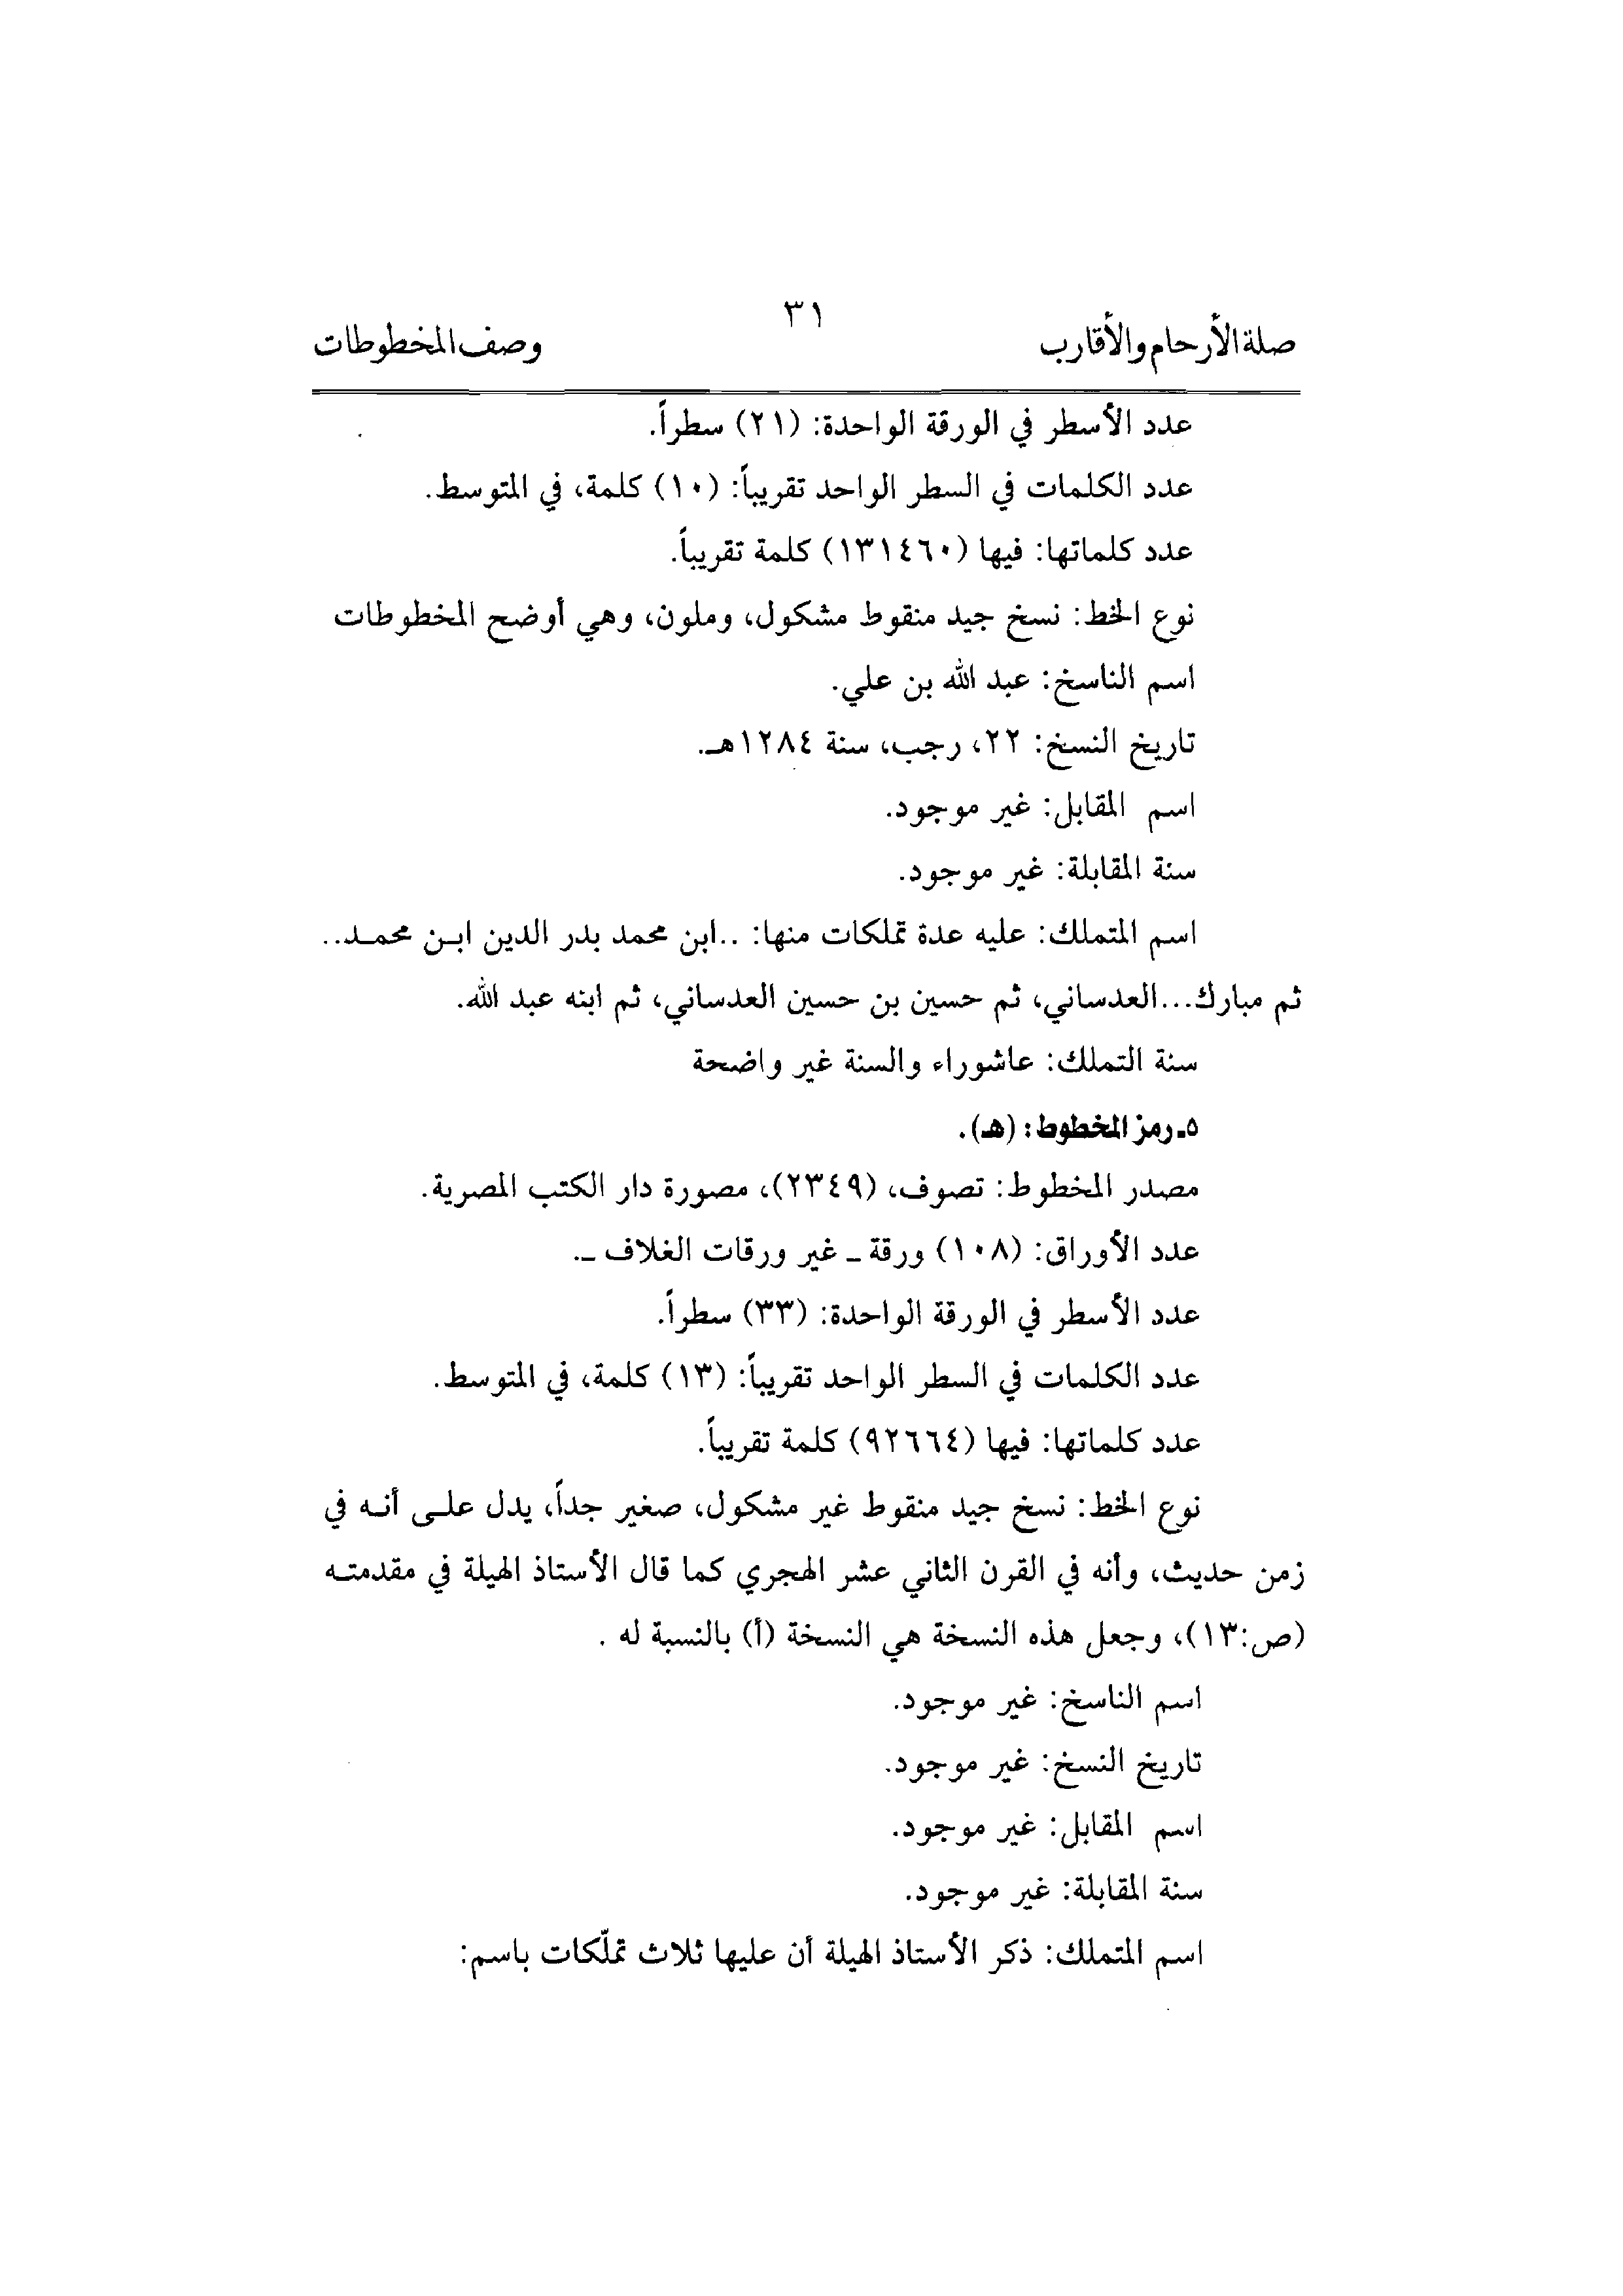 ٣١
صلة الأرحام والأقارب
وصف المخطوطات
عدد الأسطر في الورقة الواحدة: (٢١) سطراً.
عدد الكلمات في السطر الواحد تقريباً: (١٠) كلمة، في المتوسط.
عدد كلماتها: فيها (١٣١٤٦٠) كلمة تقريباً.
نوع الخط: نسخ جيد منقوط مشكول، وملون، وهي أوضح المخطوطات
اسم الناسخ: عبد الله بن علي.
تاريخ النسخ: ٢٢، رجب، سنة ١٢٨٤هـ.
اسم المقابل: غير موجود.
سنة المقابلة: غير موجود.
اسم المتملك: عليه عدة تملكات منها: ..ابن محمد بدر الدين ابـن محمـد..
ثم مبارك...العدساني، ثم حسين بن حسين العدساني، ثم ابنه عبد الله.
سنة التملك: عاشوراء والسنة غير واضحة
٥ـ رمز المخطوط: (هـ).
مصدر المخطوط: تصوف، (٢٣٤٩)، مصورة دار الكتب المصرية.
عدد الأوراق: (١٠٨) ورقة ـ غير ورقات الغلاف ـ.
عدد الأسطر في الورقة الواحدة: (٣٣) سطراً.
عدد الكلمات في السطر الواحد تقريباً: (١٣) كلمة، في المتوسط.
عدد كلماتها: فيها (٩٢٦٦٤) كلمة تقريباً.
نوع الخط: نسخ جيد منقوط غير مشكول، صغير جداً، يدل علـى أنـه في
زمن حديث، وأنه في القرن الثاني عشر الهجري كما قال الأستاذ الهيلة في مقدمتـه
(ص:١٣)، وجعل هذه النسخة هي النسخة (أ) بالنسبة له .
اسم الناسخ: غير موجود.
تاريخ النسخ: غير موجود.
اسم المقابل: غير موجود.
سنة المقابلة: غير موجود.
اسم المتملك: ذكر الأستاذ الهيلة أن عليها ثلاث تملّكات باسم: